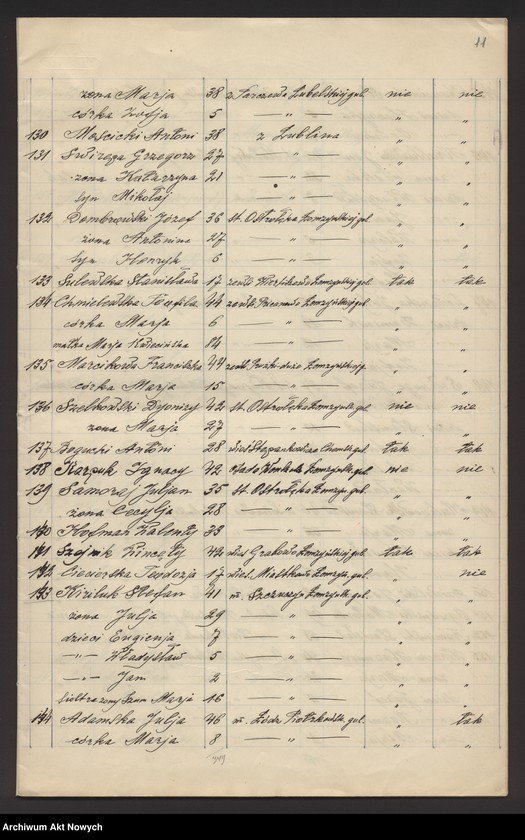 11
żona Marja 38 z Tarczewa Lubelskiej gub. nie nie
córka Zofja 5 — " — " "
130 Mościcki Antoni 38 z Lublina " "
131 Świrepa Grzegorz 27 — " — " "
żona Katarzyna 21 — " — " "
syn Mikołaj — " — " "
132 Dombrowski Józef 36 st. Ostrołęka Łomżyńskiej gub. " "
żona Antonina 27 — " — " "
syn Henryk 6 — " — " "
133 Sulewska Stanisława 17 Łomżyńskiej gub. tak tak
134 Chmielewska Teofila 44 Łomżyńskiej gub. " "
córka Marja 6 — " — " "
matka Marja Kwiecińska 84 — " — " "
135 Marcikowa Franciszka 44 Łomżyńskiej g. " "
córka Marja 15 — " — " "
136 Szelkowski Dyonizy 42 st. Ostrołęka Łomżyńsk. gub. nie nie
żona Marja 27 " "
137 Bogucki Antoni 28 wieś Stepankowizna Chomlk. gub. tak tak
138 Karpuk Ignacy 42 Łomżyńsk. gub. nie nie
139 Samoraj Juljan 35 st. Ostrołęka Łomżyń. gub. " "
żona Cecylja 28 — " — " "
140 Hofman Walenty 33 — " — " "
141 Szejnik Wincęty 42 wieś Grabowo Łomżyńskiej gub. tak tak
142 Cieciorska Teodozja 17 wieś. Łomżyńsk. gub. " nie
143 Kiriluk Stefan 41 m. Szczuczyn Łomżyńsk. gub. " "
żona Julja 29 — " — " "
dzieci Eugienja 7 — " — " "
— " — Władysław 5 — " — " "
— " — Jan 2 — " — " "
siostra żony Marja 16 — " — " "
144 Adamska Julja 46 m. Łódź Piotrkowsk. gub. " tak
córka Marja 8 — " — " "
Archiwum Akt Nowych